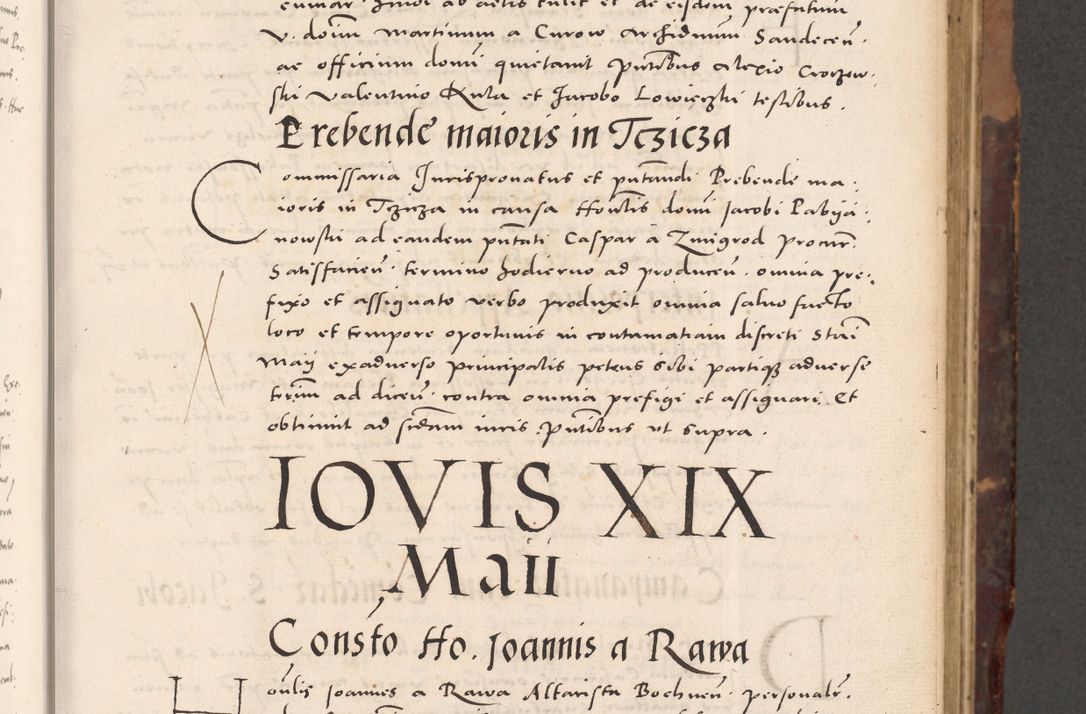 v. dom̃ Martinum a Curow Archidiaconum̃ Sandeceñ.
ac officium domĩ quietauit pñtibus Alexio Croczow.
ski Valentino Ruta et Jacobo Lowieczki testibus.
Prebende maioris in Tczicza
Commissaria Jurispronatus et pñtandi Prebende ma:
ioris in Tczicza in causa Honlis domĩ Jacobi Pabyá:
nowski ad eandem pñtati Caspar a Zmigrod Procurr̃.
Satisfacieñ. termino hodierno ad produceñ. omnia pre:
fixo et assignato verbo produxit omnia saluo facto
loco et tempore oportunis in contumatiam discreti Stanĩ
Maij exaduerso principalis petens sibi partique aduerse
termĩ ad diceñ. contra omnia prefigi et assignari. Et
obtinuit ad scdam iuris. Pñtibus vt supra.
IOVIS XIX
Maii
Consto Ho. Joannis a Rawa
Honlis Joannes a Rawa Altarista Bochneñ. personalr̃.